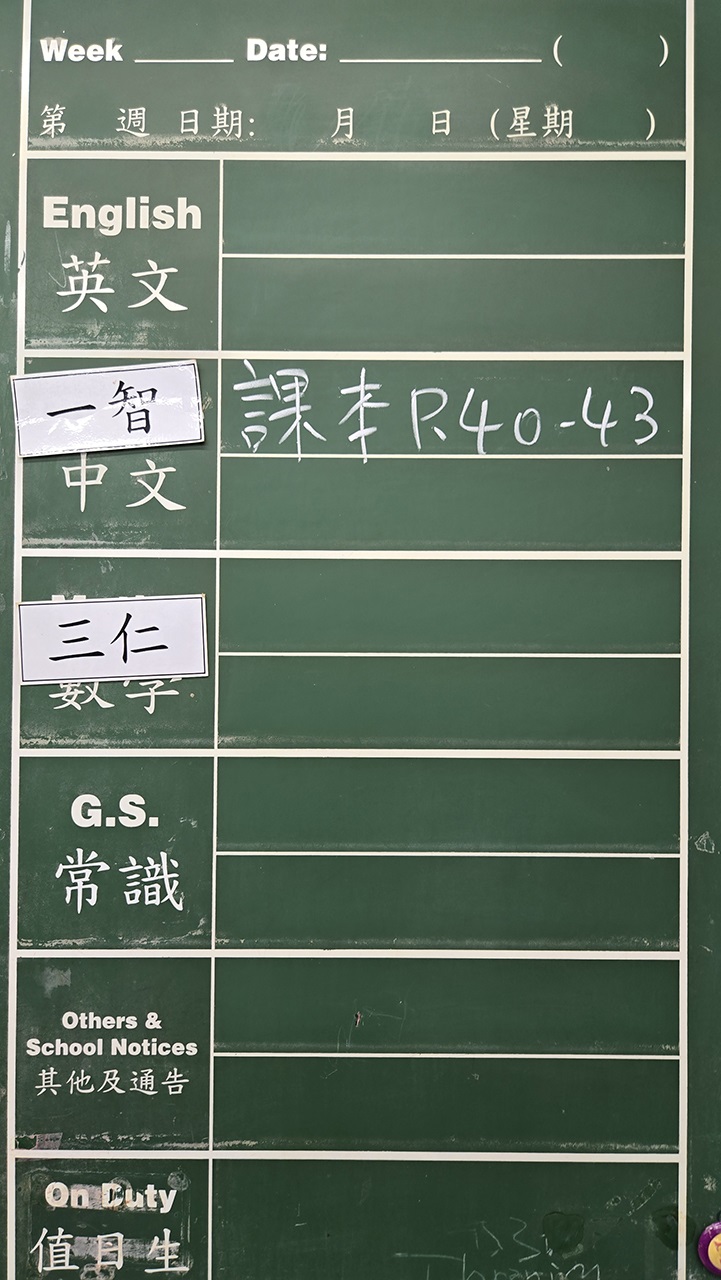 Week ______ Date: ____________ (      )
第 週 日期: 月 日 (星期 )
English
英文
一智
課本 P.40-43
中文
三仁
數字
G.S.
常識
Others &
School Notices
其他及通告
On Duty
值日生